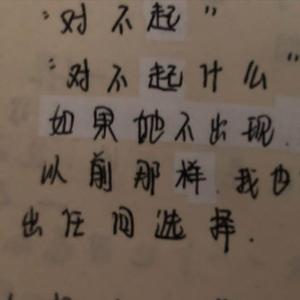 “对不起”
“对不起什么
如果她不出现.
以前那样.我也
出任何选择.